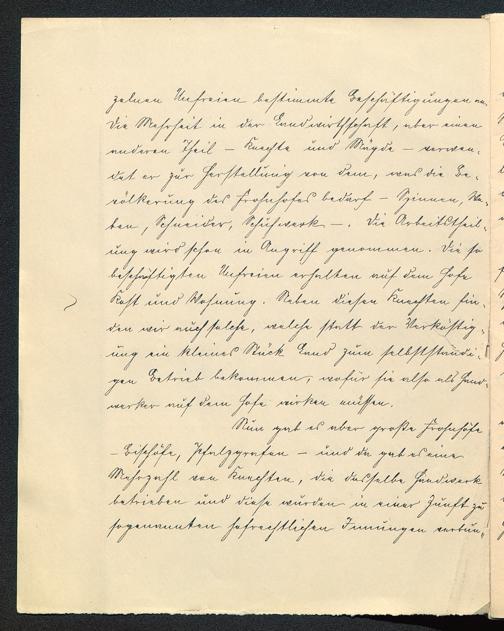 zelnen Unfreien bestimmte Beschäftigungen an.
Die Mehrheit in der Landwirthschaft, aber einen
anderen Theil – Knechte und Mägde – verwen-
det er zur Herstellung von dem, was die Be-
völkerung des Frohnhofes bedarf – Spinnen, We-
ben, Schneider, Schuhwerk –. Die Arbeitstheil-
ung wird schon in Angriff genommen. Die so
beschäftigten Unfreien erhalten auf dem Hofe
Kost und Wohnung. Neben diesen Knechten fin-
den wir auch solche, welche statt der Verköstig-
ung ein kleines Stück Land zum selbstständi-
gen Betrieb bekommen, wofür sie also als Hand-
werker auf dem Hofe wirken müssen.
Nun gab es aber große Frohnhöfe
– Bischöfe, Pfalzgrafen – und da gab es eine
Mehrzahl von Knechten, die dasselbe Handwerk
betrieben und diese wurden in einer Zunft zu
sogenannten hofrechtlichen Innungen verbun-